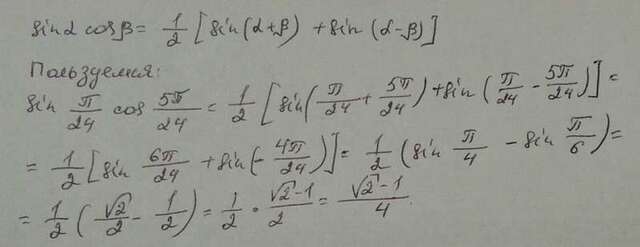 sin α cos β = 1/2 [sin(α+β) + sin(α-β)]
Пользуемся:
sin π/24 cos 5π/24 = 1/2 [sin(π/24 + 5π/24) + sin(π/24 - 5π/24)] =
= 1/2 [sin 6π/24 + sin(- 4π/24)] = 1/2 (sin π/4 - sin π/6) =
= 1/2 (√2/2 - 1/2) = 1/2 · √2-1/2 = √2-1/4.